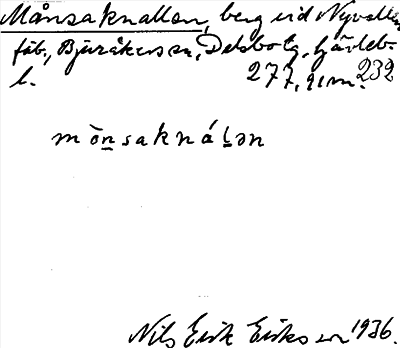 Månsaknallen, berg vid Nyvallens
fäb., Bjuråkers sn, Delsbo tg, Gävleb.
l. 277, qim. 232
mò̠nsaknálən
Nils Erik Eriksson 1936.